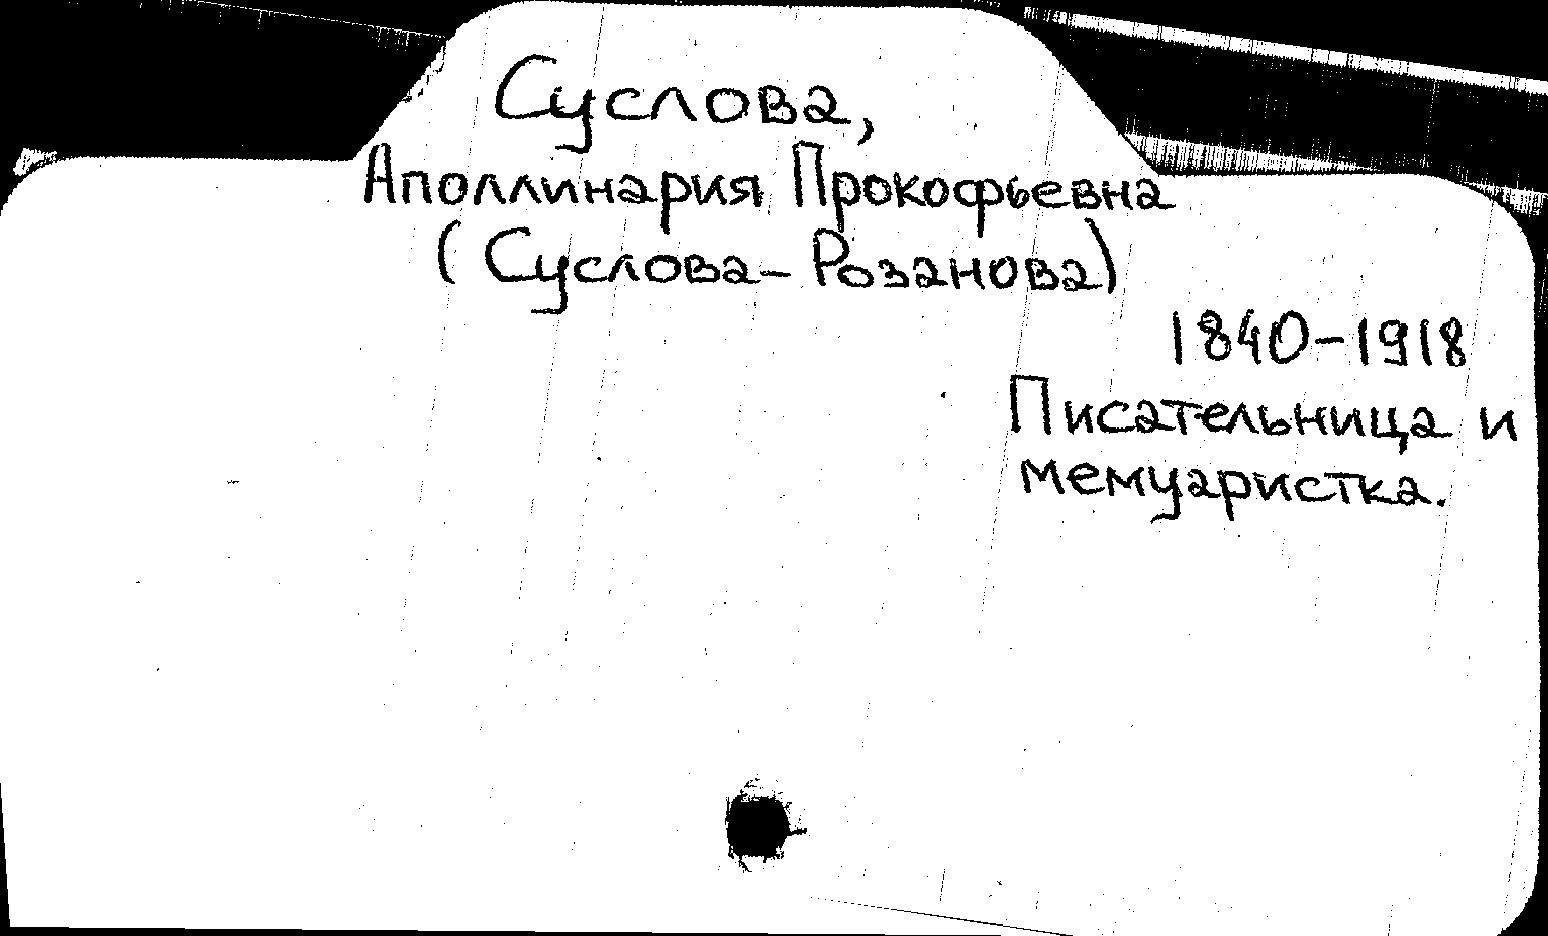 Суслова,
Аполлинария Прокофьевна
(Суслова-Розанова)
1840-1918
Писательница и
мемуаристка.